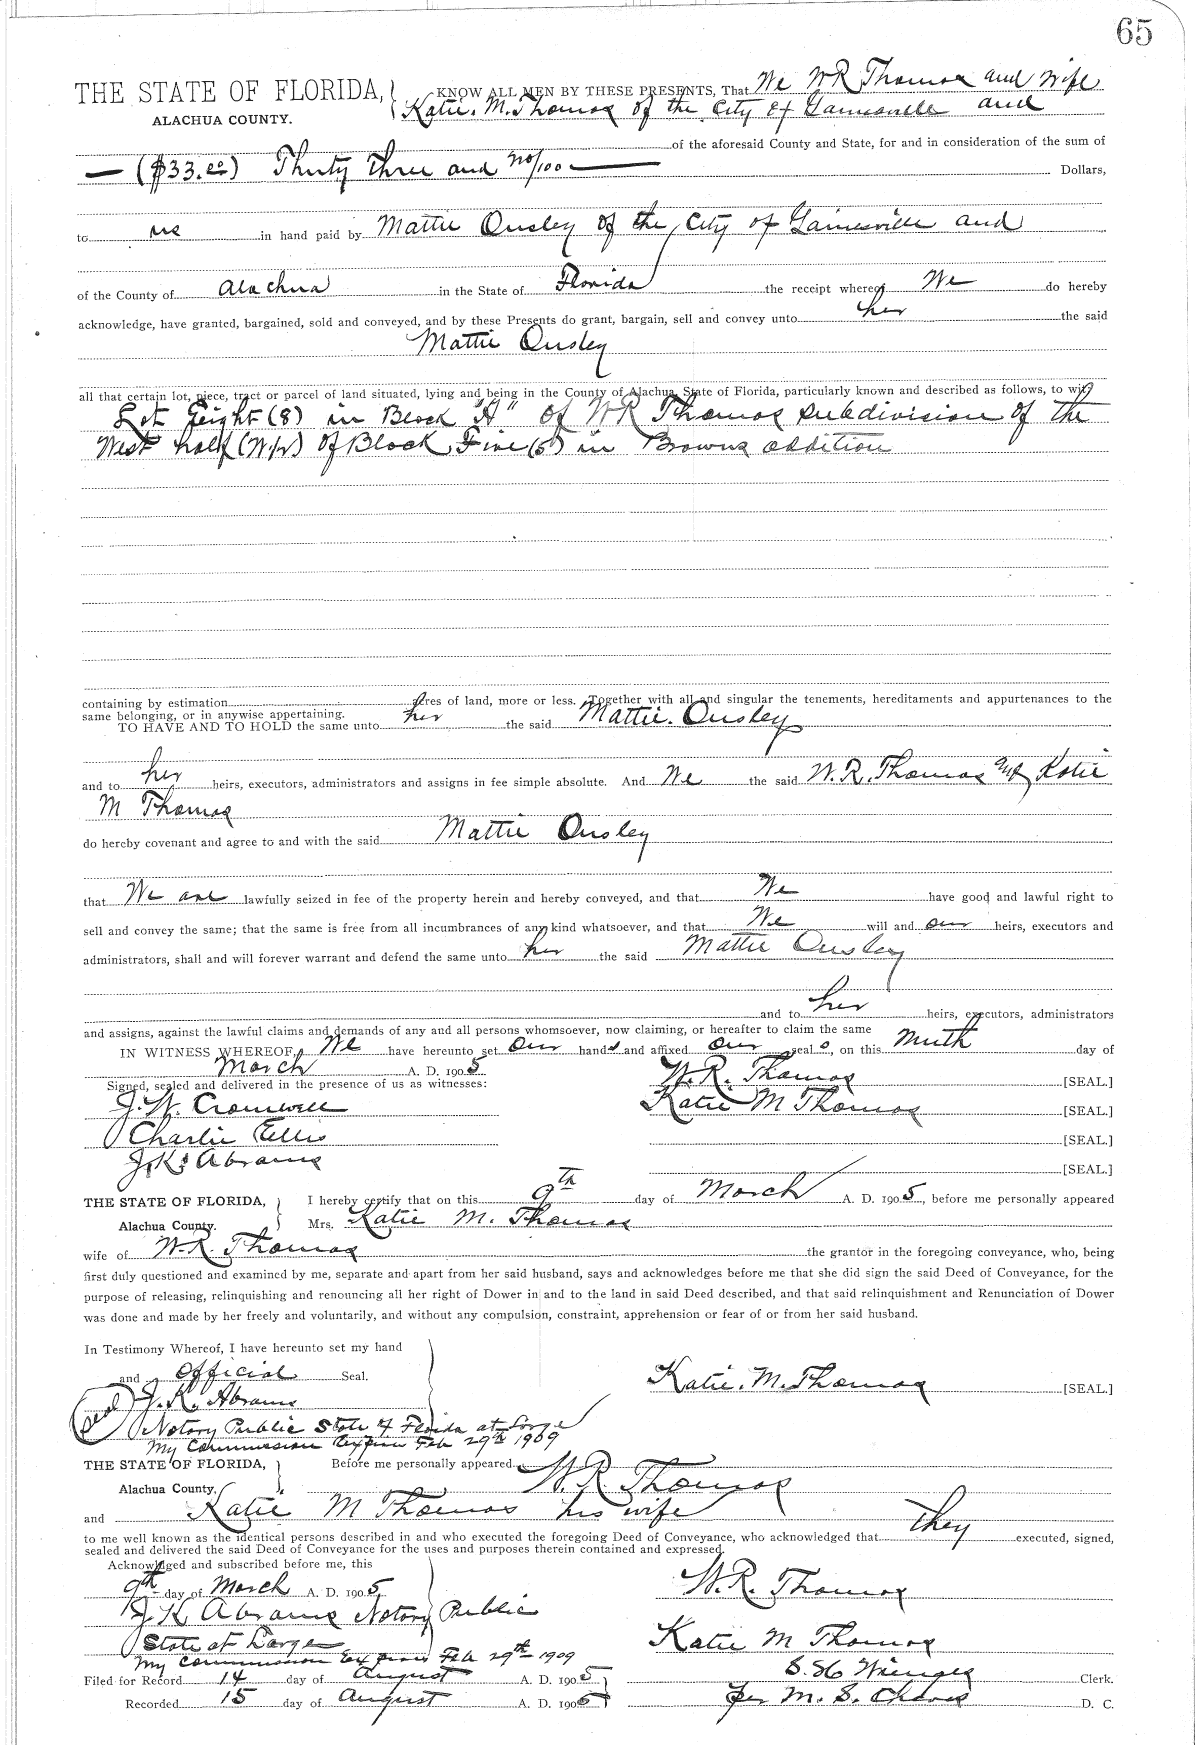 65
THE STATE OF FLORIDA, KNOW ALL MEN BY THESE PRESENTS, That We WR Thomas and Wife
ALACHUA COUNTY. Katie. M. Thomas of the City of Gainesville and
of the aforesaid County and State, for and in consideration of the sum of
— ($33.00) Thirty three and no/100 — Dollars,
to us in hand paid by Mattie Ousley of the City of Gainesville and
of the County of Alachua in the State of Florida the receipt whereof We do hereby
acknowledge, have granted, bargained, sold and conveyed, and by these Presents do grant, bargain, sell and convey unto her the said
Mattie Ousley
all that certain lot, piece, tract or parcel of land situated, lying and being in the County of Alachua, State of Florida, particularly known and described as follows, to wit
Lot Eight (8) in Block "A" of WR Thomas subdivision of the
West half (W½) of Block Five (5) in Browns addition
containing by estimation acres of land, more or less. Together with all and singular the tenements, hereditaments and appurtenances to the
same belonging, or in anywise appertaining.
TO HAVE AND TO HOLD the same unto her the said Mattie. Ousley
and to her heirs, executors, administrators and assigns in fee simple absolute. And We the said W. R. Thomas and Katie
M Thomas
do hereby covenant and agree to and with the said Mattie Ousley
that We are lawfully seized in fee of the property herein and hereby conveyed, and that We have good and lawful right to
sell and convey the same; that the same is free from all incumbrances of any kind whatsoever, and that We will and our heirs, executors and
administrators, shall and will forever warrant and defend the same unto her the said Mattie Ousley
and to her heirs, executors, administrators
and assigns, against the lawful claims and demands of any and all persons whomsoever, now claiming, or hereafter to claim the same
IN WITNESS WHEREOF, We have hereunto set our hands and affixed our seals, on this day of
March A. D. 1905
Signed, sealed and delivered in the presence of us as witnesses: W. R. Thomas [SEAL.]
J. W. Cromwell Katie M Thomas [SEAL.]
Charlie Ellis [SEAL.]
J. K. Abrams [SEAL.]
THE STATE OF FLORIDA, I hereby certify that on this 9th day of March A. D. 1905, before me personally appeared
Alachua County. Mrs. Katie M. Thomas
wife of W. R. Thomas the grantor in the foregoing conveyance, who, being
first duly questioned and examined by me, separate and apart from her said husband, says and acknowledges before me that she did sign the said Deed of Conveyance, for the
purpose of releasing, relinquishing and renouncing all her right of Dower in and to the land in said Deed described, and that said relinquishment and Renunciation of Dower
was done and made by her freely and voluntarily, and without any compulsion, constraint, apprehension or fear of or from her said husband.
In Testimony Whereof, I have hereunto set my hand
and official Seal. Katie. M. Thomas [SEAL.]
seal J. K. Abrams
Notary Public State of Florida at Large
My Commission Expires Feb 29th 1909
THE STATE OF FLORIDA, Before me personally appeared W. R. Thomas
Alachua County.
and Katie M Thomas his wife
to me well known as the identical persons described in and who executed the foregoing Deed of Conveyance, who acknowledged that they executed, signed,
sealed and delivered the said Deed of Conveyance for the uses and purposes therein contained and expressed.
Acknowledged and subscribed before me, this
9th day of March A. D. 1905 W. R. Thomas
J K Abrams Notary Public
State at Large Katie M Thomas
My Commission Expires Feb 29th 1909
Filed for Record 14 day of August A. D. 1905 Clerk.
Recorded 15 day of August A. D. 1905 per M. S. D. C.